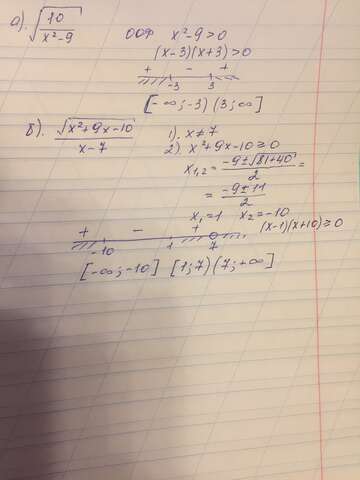 а). √(10/(x²-9)) ООФ x²-9>0
(x-3)(x+3)>0
+ - +
-3 3
[-∞;-3) (3;∞]
б). √(x²+9x-10)/(x-7) 1). x≠7
2). x²+9x-10≥0
x₁,₂ = (-9±√(81+40))/2 =
= (-9±11)/2
x₁=1 x₂=-10
+ - + (x-1)(x+10)≥0
-10 1 7
[-∞;-10] [1;7) (7;+∞]